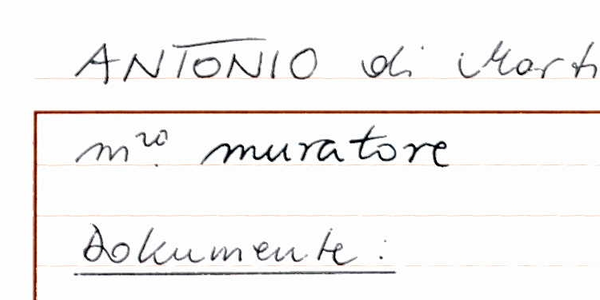 ANTONIO di Marti
m.ro muratore
Dokumente: